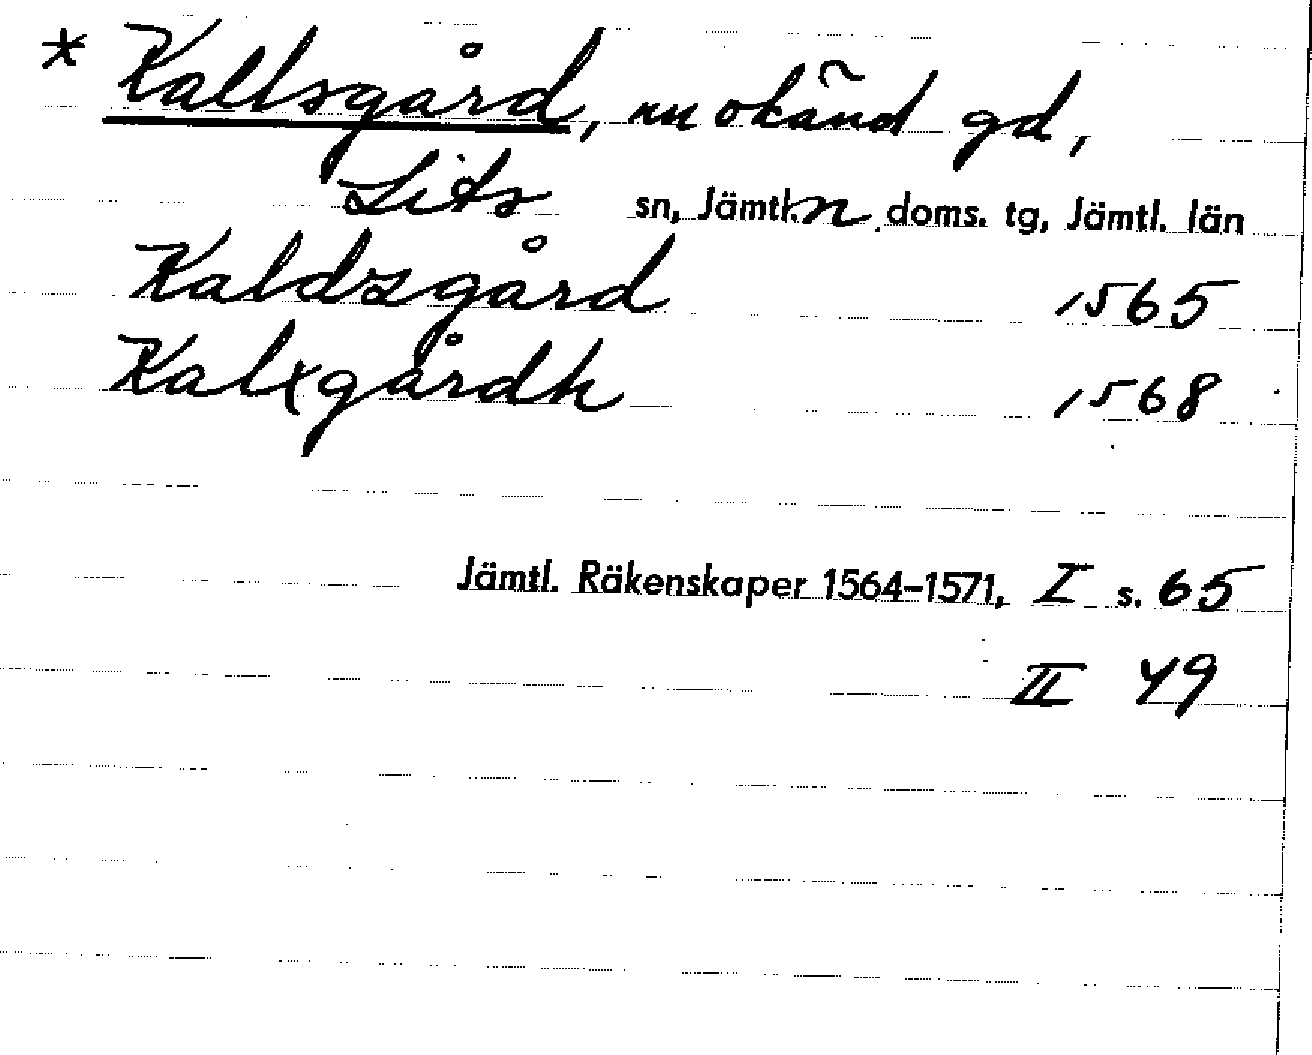 * Kallsgård, nu okänd gd,
Lits sn, Jämtl. n doms. tg, Jämtl. län
Kaldzgård 1565
Kalxgårdh 1568
Jämtl. Räkenskaper 1564-1571, I s. 65
II 49